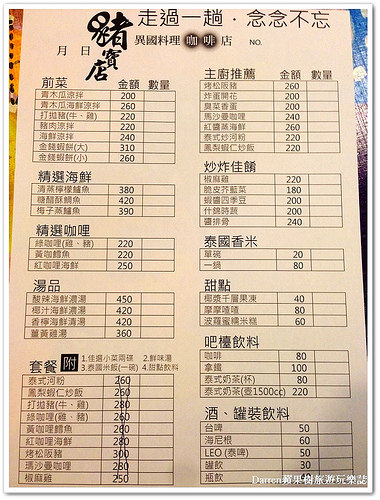 走過一趟．念念不忘
豬寶店
異國料理 咖啡 店 NO.
月 日
前菜 金額 數量
青木瓜涼拌 200
青木瓜海鮮涼拌 260
打拋豬(牛、雞) 220
豬肉涼拌 220
海鮮涼拌 240
金錢蝦餅(大) 310
金錢蝦餅(小) 260
精選海鮮
清蒸檸檬鱸魚 380
糖醋酥鯛魚 420
梅子蒸鱸魚 390
精選咖哩
綠咖哩(雞、豬) 220
黃咖鱈魚 220
紅咖哩海鮮 250
湯品
酸辣海鮮濃湯 450
椰汁海鮮濃湯 420
香檸海鮮清湯 420
薑黃雞湯 360
套餐 附 1.佳選小菜兩碟 2.鮮味湯
3.泰國米飯(一碗) 4.甜點飲料
泰式河粉 260
鳳梨蝦仁炒飯 260
打拋豬(牛、雞) 280
綠咖哩(雞、豬) 260
黃咖哩鱈魚 260
紅咖哩海鮮 280
烤松阪豬 300
瑪沙曼咖哩 280
椒麻雞 250
主廚推薦 金額 數量
烤松阪豬 260
炸蛋開花 200
臭菜香蛋 200
馬沙曼咖哩 240
紅醬蒸海鮮 260
泰式炒河粉 220
鳳梨蝦仁炒飯 220
炒炸佳餚
椒麻雞 220
脆皮芥藍菜 180
蝦醬四季豆 200
什錦時蔬 200
醬排骨 240
泰國香米
單碗 20
一鍋 80
甜點
椰漿千層果凍 40
摩摩喳喳 80
波羅蜜糯米糕 60
吧檯飲料
咖啡 80
拿鐵 100
泰式奶茶(杯) 80
泰式奶茶(壺1500cc) 220
酒、罐裝飲料
台啤 50
海尼根 60
LEO (泰啤) 50
罐飲 30
瓶飲 40
Darren蘋果樹旅遊玩樂誌